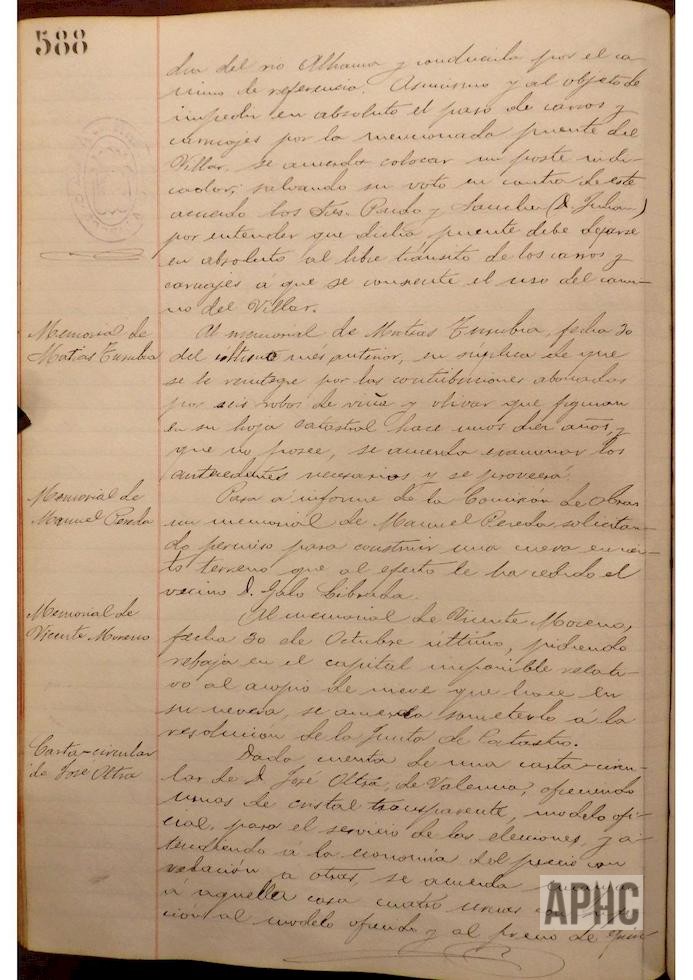 588
dra del rio Alhama y conducirla por el ca-
mino de referencia. Asimismo y al objeto de
impedir en absoluto el paso de carros y
carruajes por la mencionada puente del
Villar, se acuerda colocar un poste indi-
cador, salvando su voto en contra de este
acuerdo los Sres. Pardo y Sanchez (D. Julian)
por entender que dicha puente debe dejarse
en absoluto al libre tránsito de los carros y
carruajes á que se consiente el uso del cami-
no del Villar.
Memorial de
Matías
Al memorial de Matías fecha 30
del último més anterior, en súplica de que
se le reintegre por las contribuciones abonadas
por seis robos de viña y olivar que figuran
en su hoja catastral hace unos diez años, y
que no posee, se acuerda examinar los
antecedentes necesarios y se proveerá.
Memorial de
Manuel Pereda
Pasa á informe de la Comisión de Obras
un memorial de Manuel Pereda solicitan-
do permiso para construir una cueva en cier-
to terreno que al efecto le ha cedido el
vecino D. Galo Librada.
Memorial de
Vicente Moreno
Al memorial de Vicente Moreno,
fecha 30 de Octubre último, pidiendo
rebaja en el capital imponible relati-
vo al acopio de nieve que hace en
su nevera, se acuerda someterlo á la
resolucion de la Junta de Catastro.
Carta-circular
de José Oltra
Dada cuenta de una carta-circu-
lar de D. José Oltra, de Valencia, ofreciendo
urnas de cristal transparente, modelo ofi-
cial, para el servicio de las elecciones, y a-
tendiendo á la economía del precio con
relación á otras, se acuerda
á aquella casa cuatro urnas con
ción al modelo ofrecido y al precio de quin
APHC